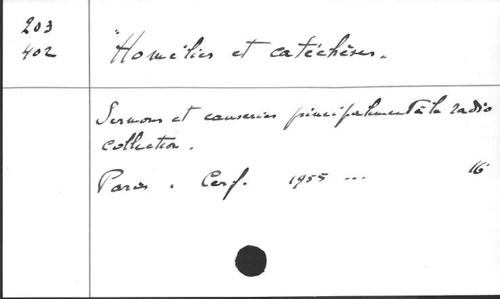 203
402
"Homélies et catéchèses.
Sermons et causeries principalement à la radio
collection.
Paris. Cerf. 1955 ... 16